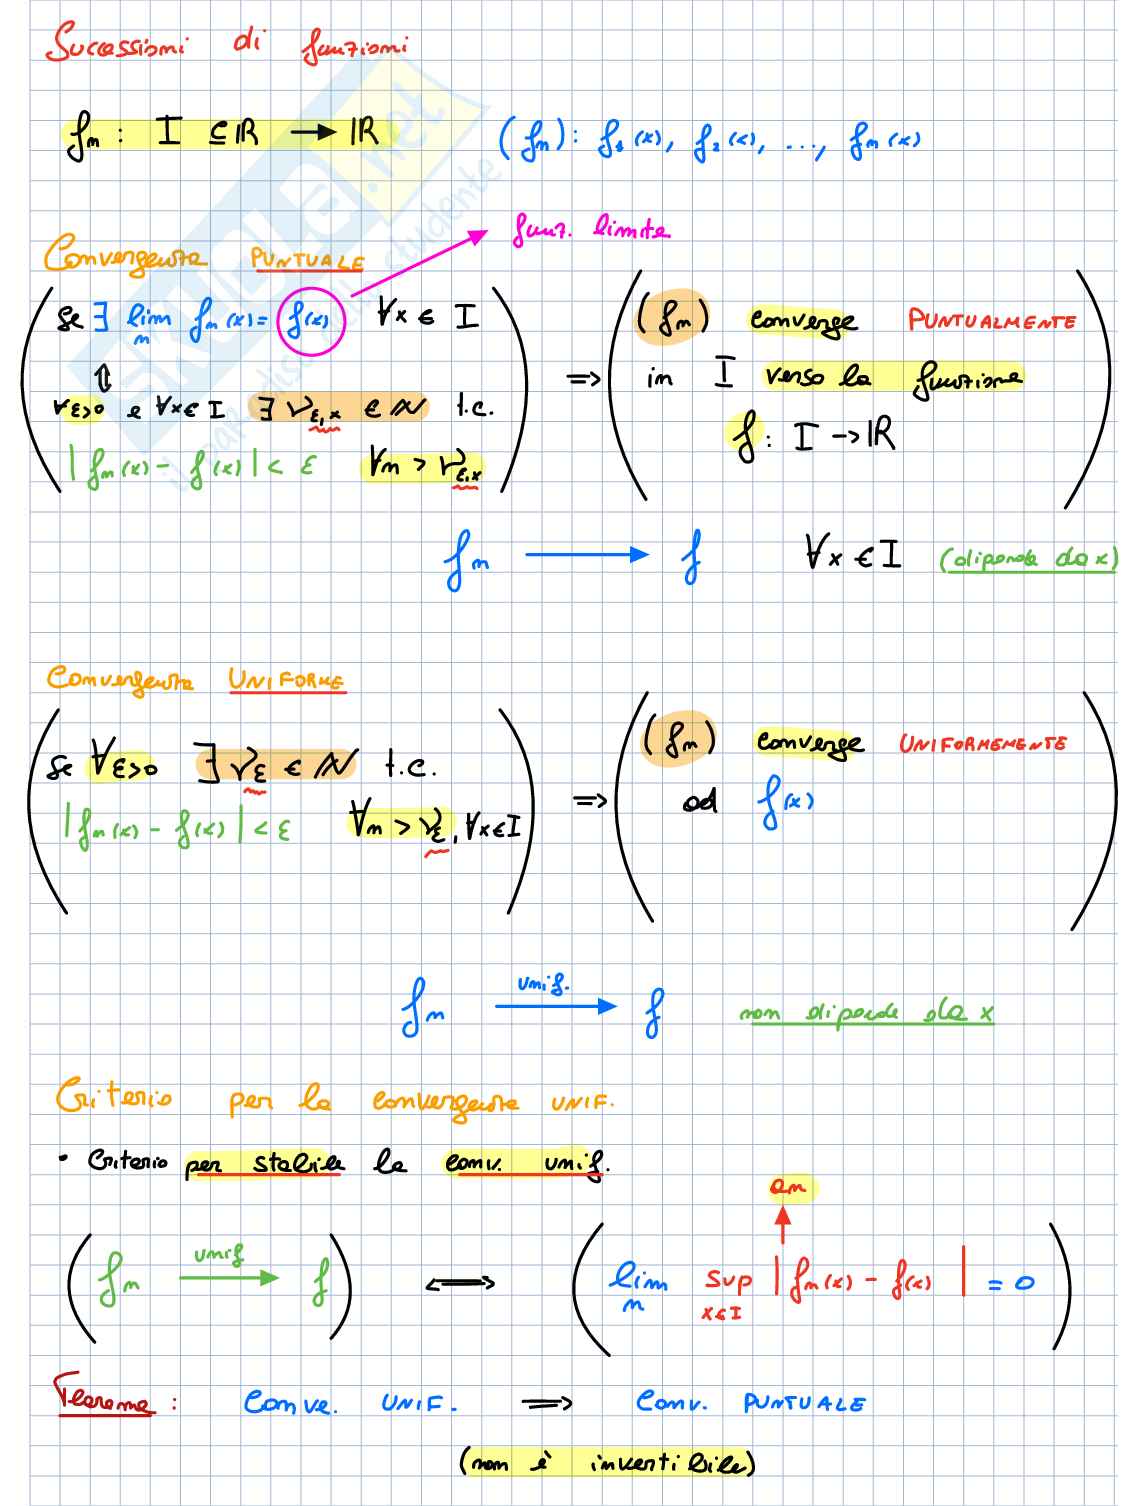 Successioni di funzioni
fn : I ⊆ ℝ → ℝ (fn): f1(x), f2(x), ..., fn(x)
funz. limite
Convergenza PUNTUALE
se ∃ lim n fn(x) = f(x) ∀x ∈ I
⇕
∀ε>0 e ∀x∈I ∃ νε,x ∈ ℕ t.c.
|fn(x) - f(x)| < ε ∀n > νε,x
⇒ (fn) converge PUNTUALMENTE
in I verso la funzione
f : I → ℝ
fn → f ∀x ∈ I (dipende da x)
Convergenza UNIFORME
se ∀ε>0 ∃ νε ∈ ℕ t.c.
|fn(x) - f(x)| < ε ∀n > νε, ∀x∈I
⇒ (fn) converge UNIFORMEMENTE
ad f(x)
fn unif. → f non dipende da x
Criterio per la convergenza UNIF.
• Criterio per stabile la conv. unif.
an
(fn unif → f) ⟺ (lim n sup x∈I |fn(x) - f(x)| = 0)
Teorema : Conve. UNIF. ⇒ Conv. PUNTUALE
(non è invertibile)
SKUOLA.net